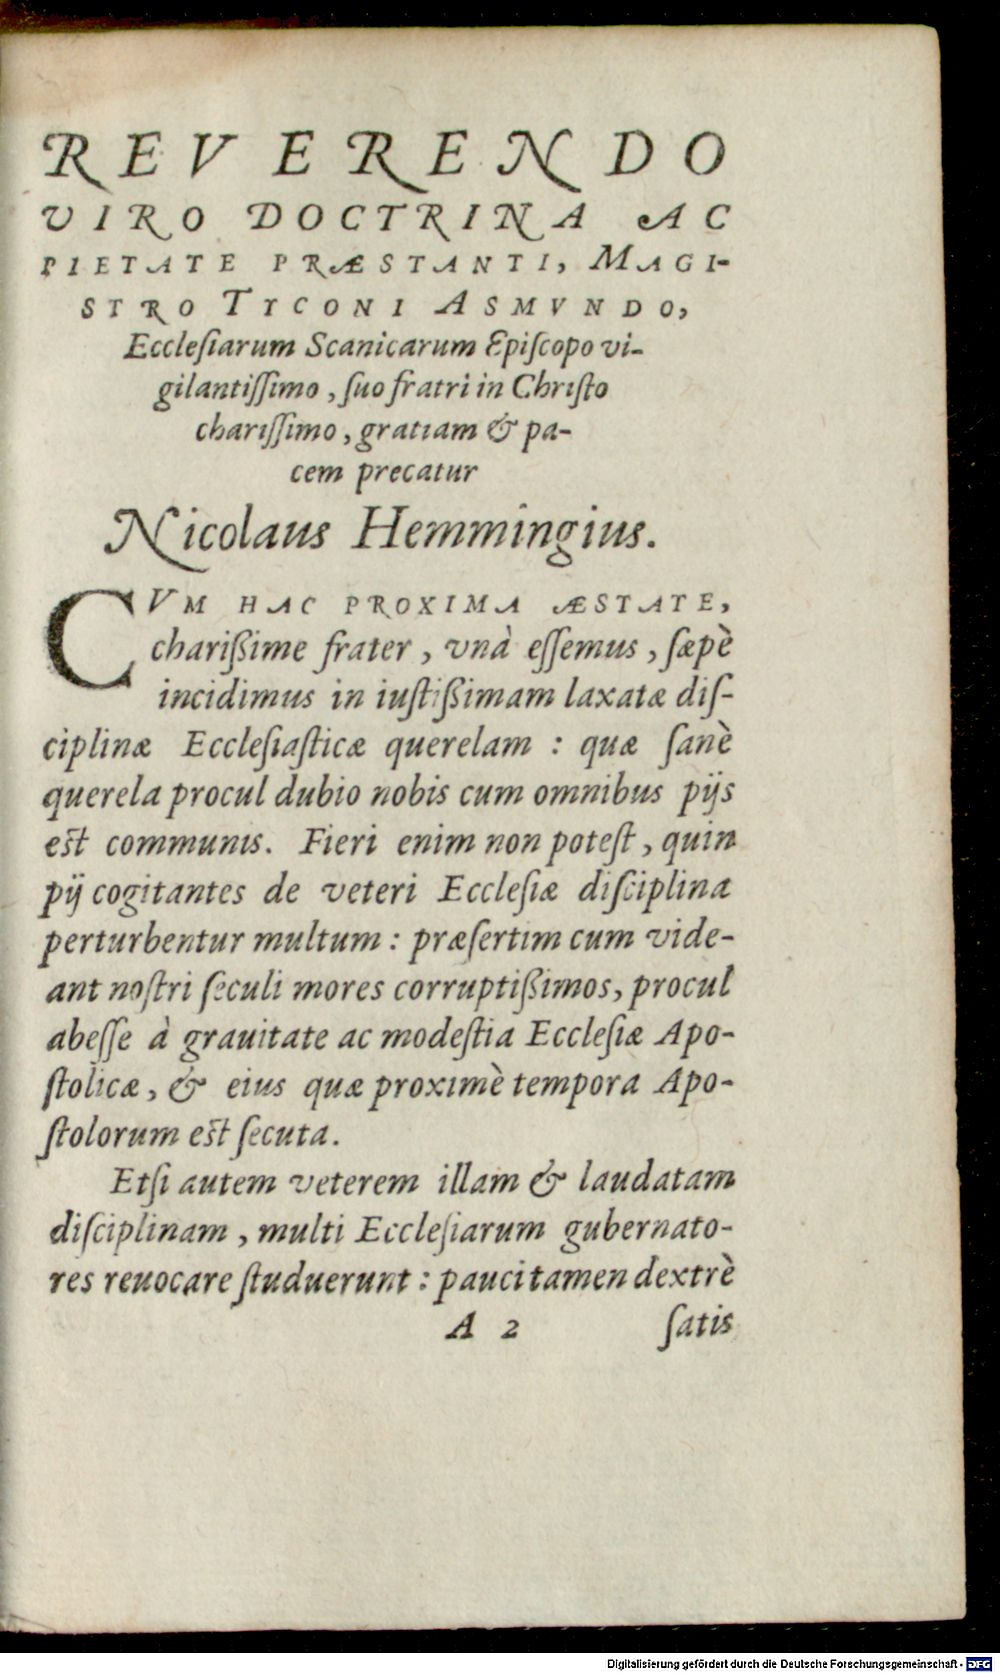 REVERENDO
VIRO DOCTRINA AC
PIETATE PRÆSTANTI, MAGI-
STRO TYCONI ASMVNDO,
Eccleſiarum Scanicarum Epiſcopo vi-
gilantiſſimo, ſuo fratri in Chriſto
chariſſimo, gratiam & pa-
cem precatur
Nicolaus Hemmingius.
CVM HAC PROXIMA ÆSTATE,
charißime frater, vnà eſſemus, ſæpè
incidimus in iuſtißimam laxatæ diſ-
ciplinæ Eccleſiaſticæ querelam: quæ ſanè
querela procul dubio nobis cum omnibus pijs
eſt communis. Fieri enim non poteſt, quin
pij cogitantes de veteri Eccleſiæ diſciplina
perturbentur multum: præſertim cum vide-
ant noſtri ſeculi mores corruptißimos, procul
abeſſe à grauitate ac modeſtia Eccleſiæ Apo-
ſtolicæ, & eius quæ proximè tempora Apo-
ſtolorum eſt ſecuta.
Etſi autem veterem illam & laudatam
diſciplinam, multi Eccleſiarum gubernato-
res reuocare ſtuduerunt: pauci tamen dextrè
A 2 ſatis
Digitalisierung gefördert durch die Deutsche Forschungsgemeinschaft - DFG